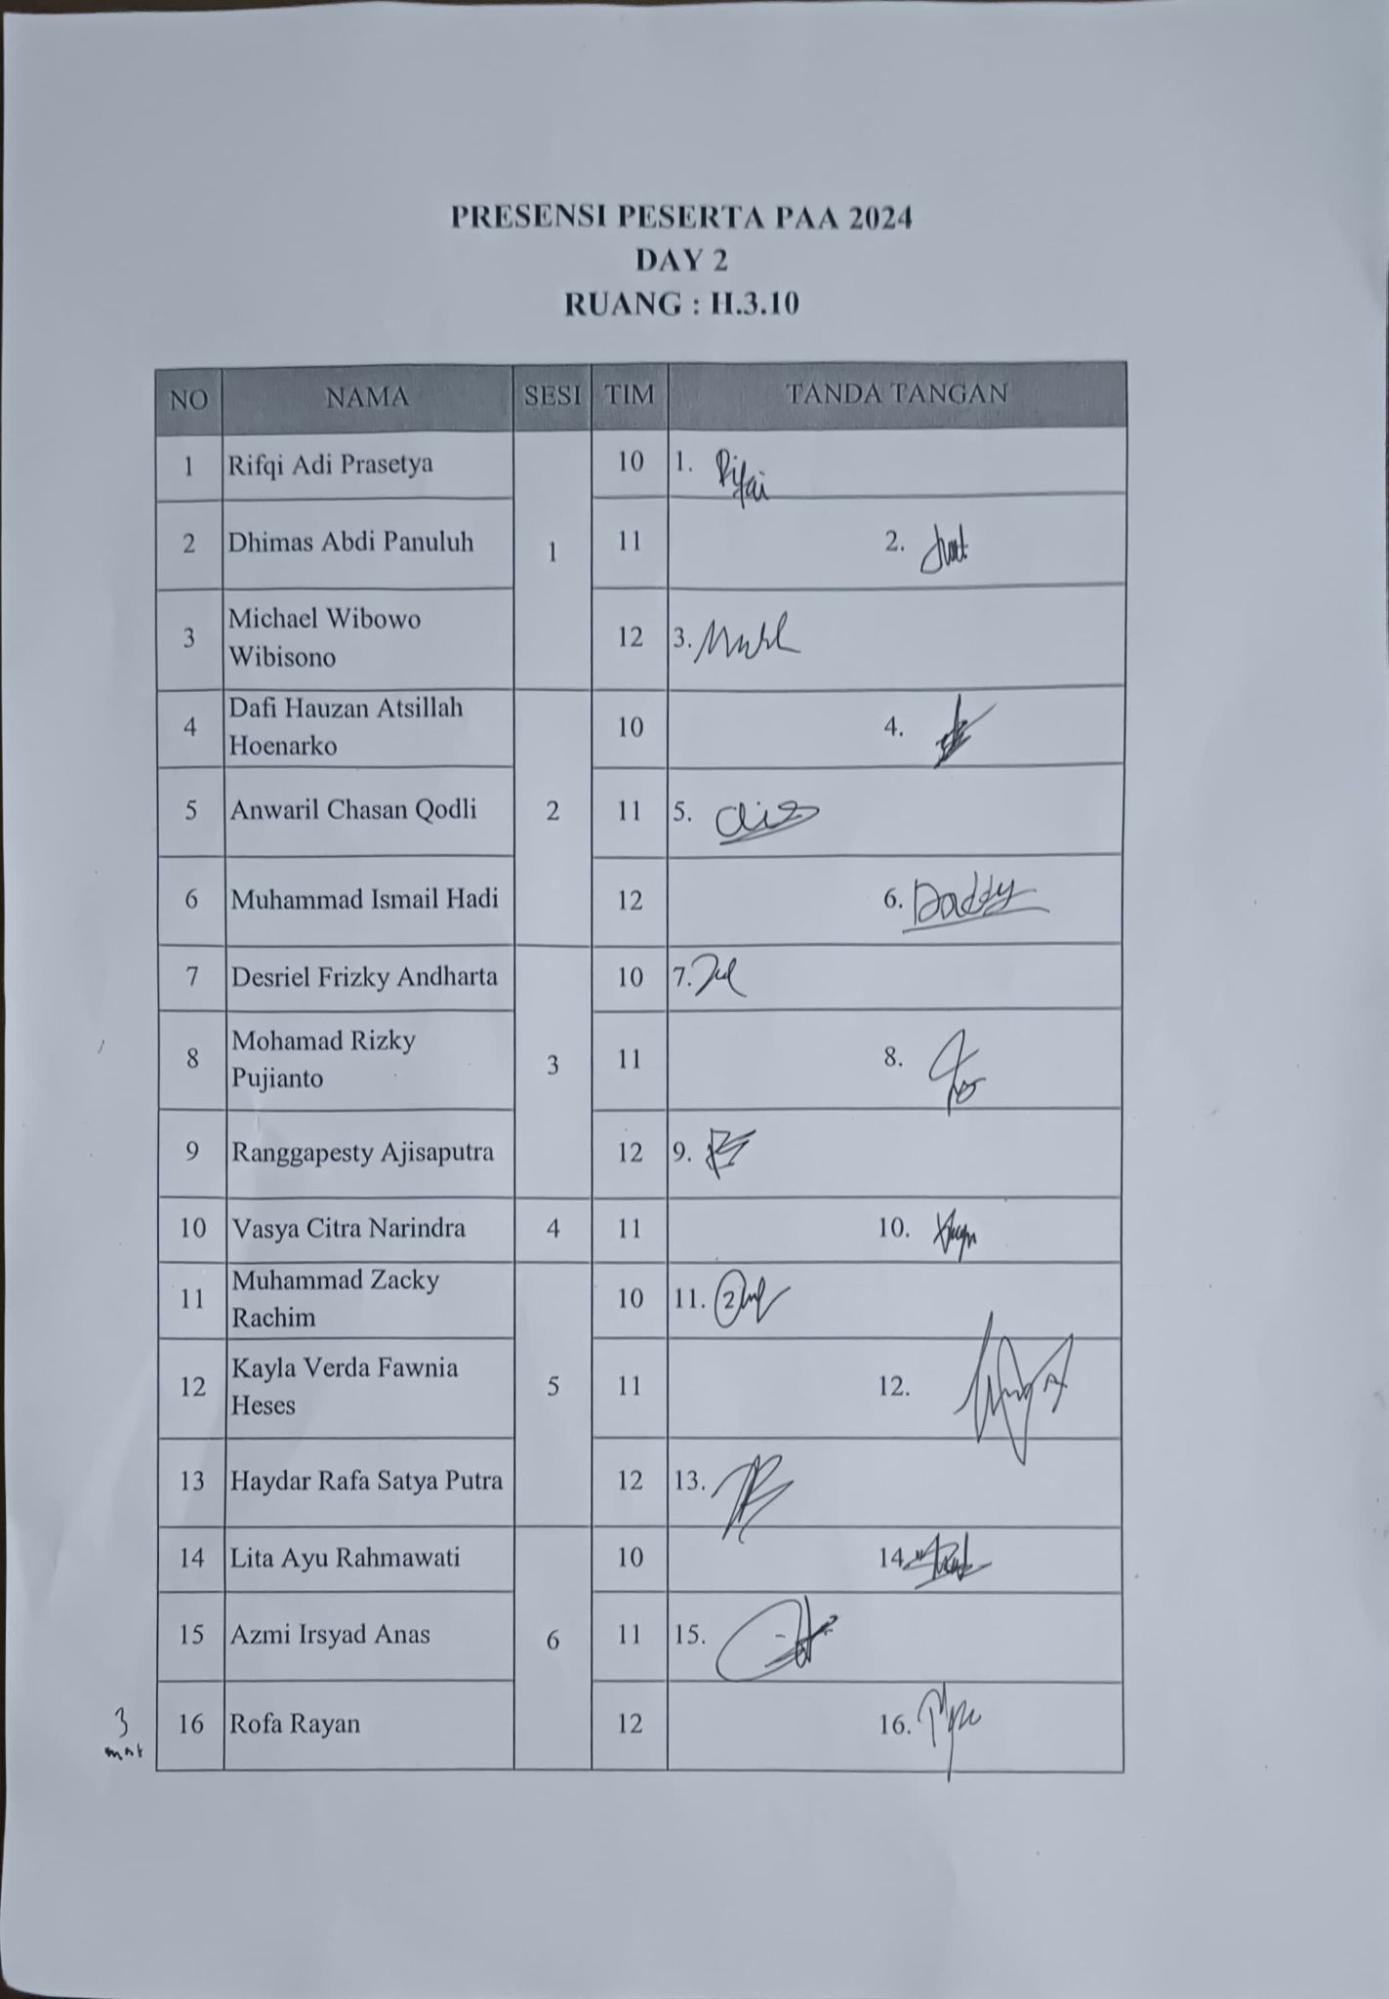 PRESENSI PESERTA PAA 2024
DAY 2
RUANG : H.3.10
NO NAMA SESI TIM TANDA TANGAN
1 Rifqi Adi Prasetya 10 1. Rifqi
2 Dhimas Abdi Panuluh 1 11 2.
3 Michael Wibowo Wibisono 12 3.
4 Dafi Hauzan Atsillah Hoenarko 10 4.
5 Anwaril Chasan Qodli 2 11 5.
6 Muhammad Ismail Hadi 12 6. Daddy
7 Desriel Frizky Andharta 10 7.
8 Mohamad Rizky Pujianto 3 11 8.
9 Ranggapesty Ajisaputra 12 9.
10 Vasya Citra Narindra 4 11 10.
11 Muhammad Zacky Rachim 10 11.
12 Kayla Verda Fawnia Heses 5 11 12.
13 Haydar Rafa Satya Putra 12 13.
14 Lita Ayu Rahmawati 10 14.
15 Azmi Irsyad Anas 6 11 15.
3 16 Rofa Rayan 12 16.